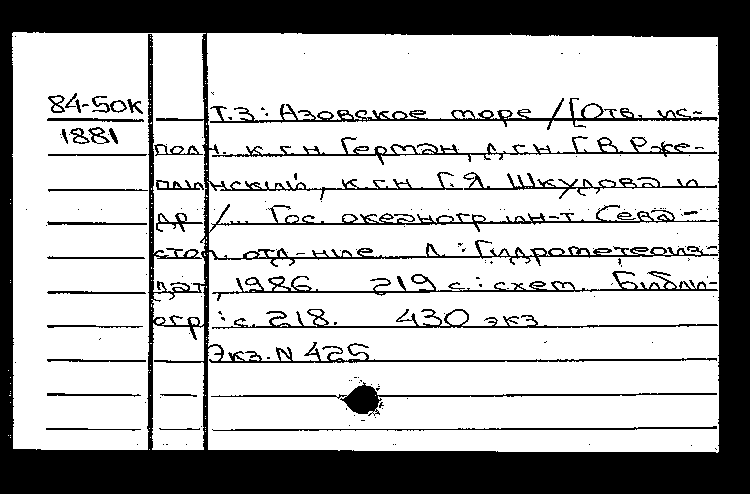 84-5ОК
1881
Т.3: Азовское море /[Отв. ис-
полн. к.г.н. Герман, д.г.н. Г.В. Рже-
плинский, к.г.н. Г.Я. Шкудова и
др/... Гос. океаногр ин-т. Сева-
стоп. отд-ние Л.: Гидрометеоиз-
дат, 1986. 219 с.: схем. Библи-
огр: с. 218. 430 экз.
Экз. N 425